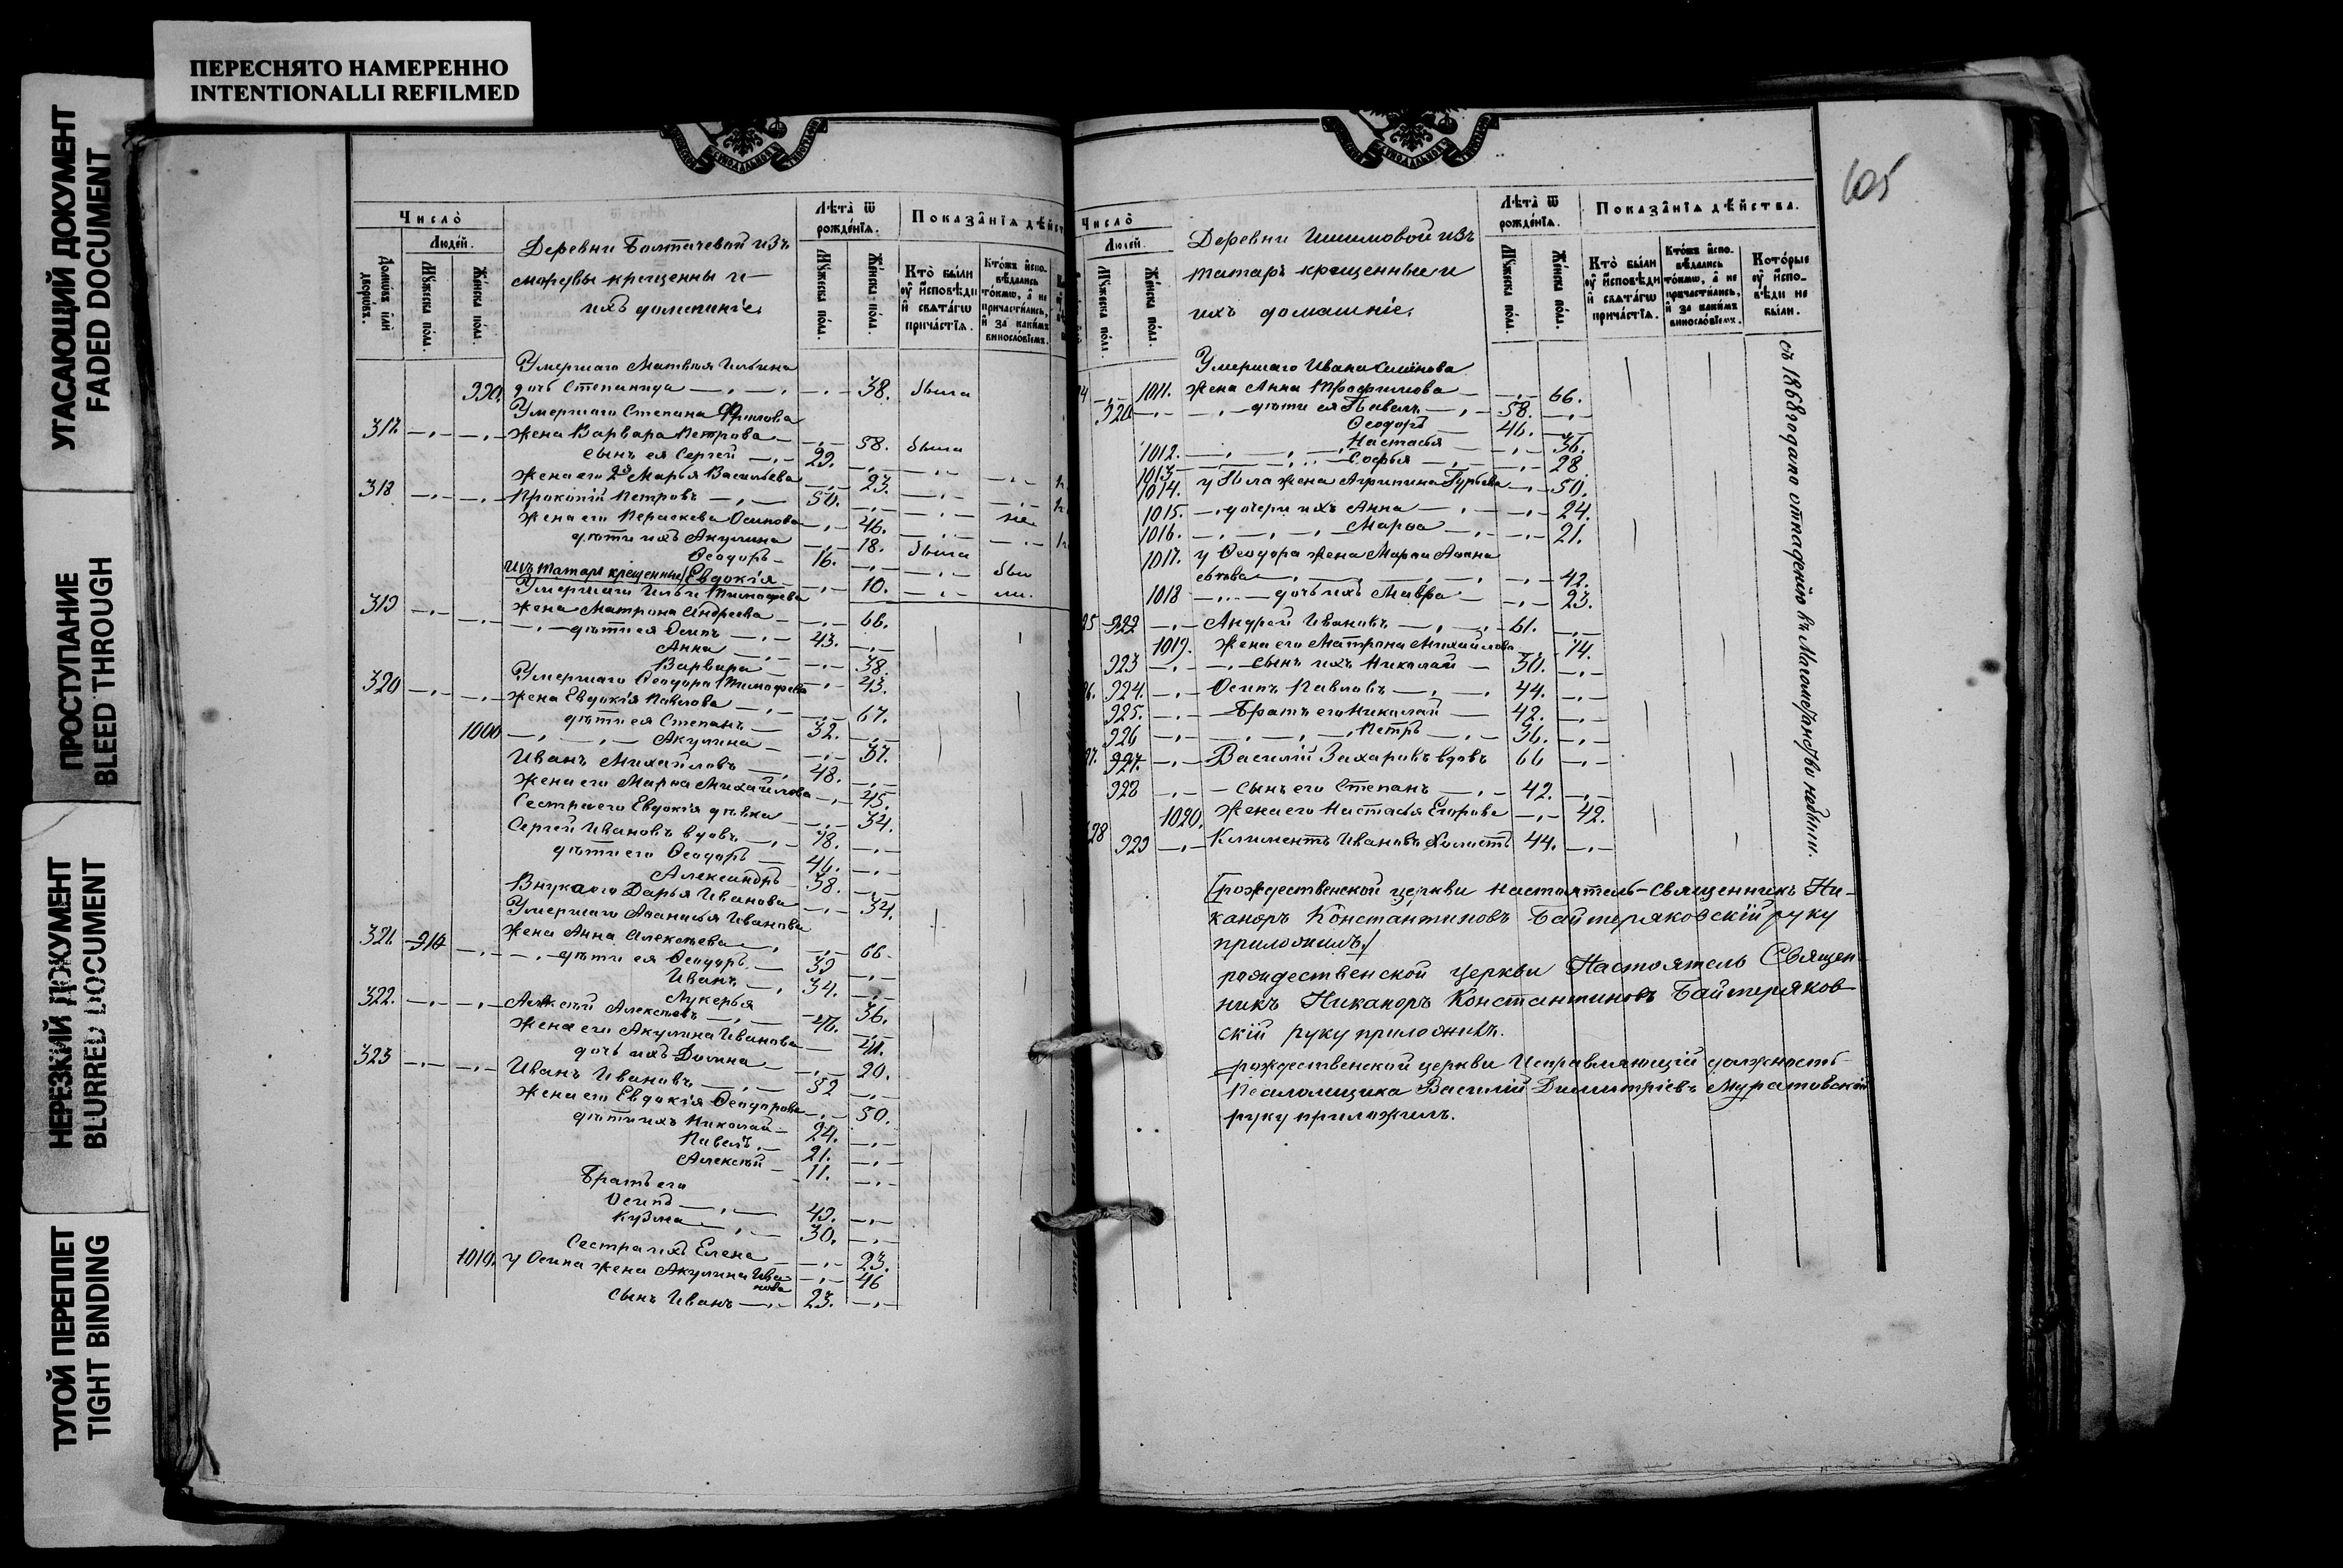 ПЕРЕСНЯТО НАМЕРЕННО
INTENTIONALLI REFILMED
УГАСАЮЩИЙ ДОКУМЕНТ
FADED DOCUMENT
ПРОСТУПАНИЕ
BLEED THROUGH
НЕРЕЗКИЙ ДОКУМЕНТ
BLURRED DOCUMENT
ТУГОЙ ПЕРЕПЛЕТ
TIGHT BINDING
Число̀
Людей.
Домѡвъ илѝ дворѡвъ.
Мꙋжеска полꙋ.
Женска полꙋ.
Деревни Болтачевой изъ
мордвы крещенны и
ихъ домашніе.
Лѣта̀ ѿ рожденїя.
Мꙋжеска полꙋ.
Женска полꙋ.
Показанїя дѣйст
Кто̀ были оу̓ исповѣди и свѧтагѡ причастїя.
Ктожъ испо-вѣдались токмѡ, а не причастились, и за какимъ винословїемъ.
Умершаго Матвѣя Ильина
990. дочь Степанида 38. была
Умершаго Степана
317. жена Варвара Петрова 58. была
сынъ ея Сергей 29.
жена его 2я Марья Васильева 23.
318 Прокопій Петровъ 50.
жена его Параскева Осипова 46. не
дѣти ихъ Акулина 18. была
Ѳеодоръ 16. бы
изъ татаръ крещенныхъ Евдокія 10. ли.
Умершаго Ильи Тимофеева
319 жена Матрона Андреева 66.
дѣти ея Осипъ 43.
Анна 38.
Варвара 43.
Умершаго Ѳеодора Тимофеева
320 жена Евдокія Павлова 67.
дѣти ея Степанъ 32.
1000 Акулина 37.
Иванъ Михайловъ 48.
жена его Марѳа Михайлова 45.
Сестра его Евдокія дѣвка 34.
Сергей Ивановъ вдовъ 78.
дѣти его Ѳеодоръ 46.
Александръ 38.
Внука его Дарья Иванова 34.
Умершаго Аѳанасья Иванова
321. 910 жена Анна Алексѣева 66.
дѣти ея Ѳеодоръ 39
Иванъ 34.
Лукерья 36.
322. Алексѣй Алексѣевъ 46.
жена его Акулина Иванова 41.
дочь ихъ Домна 20.
323 Иванъ Ивановъ 52
жена его Евдокія Ѳеодорова 50.
дѣти ихъ Николай 24.
Павелъ 21.
Алексѣй 11.
Братъ его
Осипъ 49.
Кузма 30.
Сестра ихъ Елена 23.
1010. у Осипа жена Акулина Ива-
нова 46
сынъ Иванъ 23.
105
Число̀
Людей.
Мꙋжеска полꙋ.
Женска полꙋ.
Деревни Ишимовой изъ
татаръ крещенные и
ихъ домашніе.
Лѣта̀ ѿ рожденїя.
Мꙋжеска полꙋ.
Женска полꙋ.
Показанїя дѣйства.
Кто̀ были оу̓ исповѣди и свѧтагѡ причастїя.
Ктожъ испо-вѣдались токмѡ, а не причастились, и за какимъ винословїемъ.
Которые оу̓ испо-вѣди не были.
Умершаго Ивана Семёнова
4 1011. жена Анна Трофимова 66.
920 дѣти ея Павелъ 58.
Ѳеодоръ 46.
1012. Настасья 36.
1013 Софья 28
1014. у Пвла жена Агрипина Гурьева 50.
1015. дочери ихъ Анна 24.
1016. Марѳа 21.
1017. у Ѳеодора жена Марѳа Аѳана
сьева 42.
1018 дочь ихъ Мавра 23.
25 922 Андрей Ивановъ 61.
1019. жена его Матрона Михайлова 74.
923 сынъ ихъ Николай 30.
26. 924. Осипъ Павловъ 44.
925. Братъ его Николай 42.
926 Петръ 36.
27. 927. Василій Захаровъ вдовъ 66
928 сынъ его Степанъ 42.
1020. жена его Настасья Егорова 42.
28 929 Климентъ Ивановъ Холостъ 44.
съ 1868 года по отпаденію въ Магометанство небыли.
рождественской церкви настоятель-священникъ Ни-
каноръ Константиновъ Баймеряковскій руку
приложилъ
рождественской церкви Настоятель Священ
никъ Никаноръ Константиновъ Баймеряков
скій руку приложилъ.
рождественской церкви Исправляющій должность
Псаломщика Василій Димитріевъ Муратовскій
руку приложилъ.